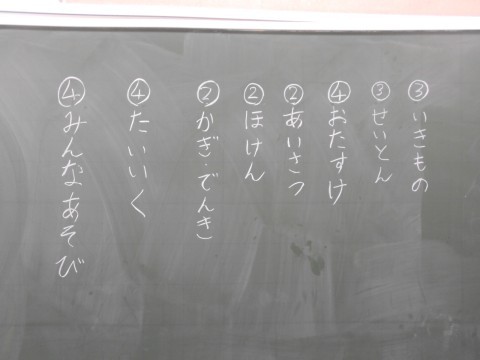 ③いきもの
③せいとん
④おたすけ
②あいさつ
②ほけん
②かぎ・でんき
④たいいく
④みんなあそび